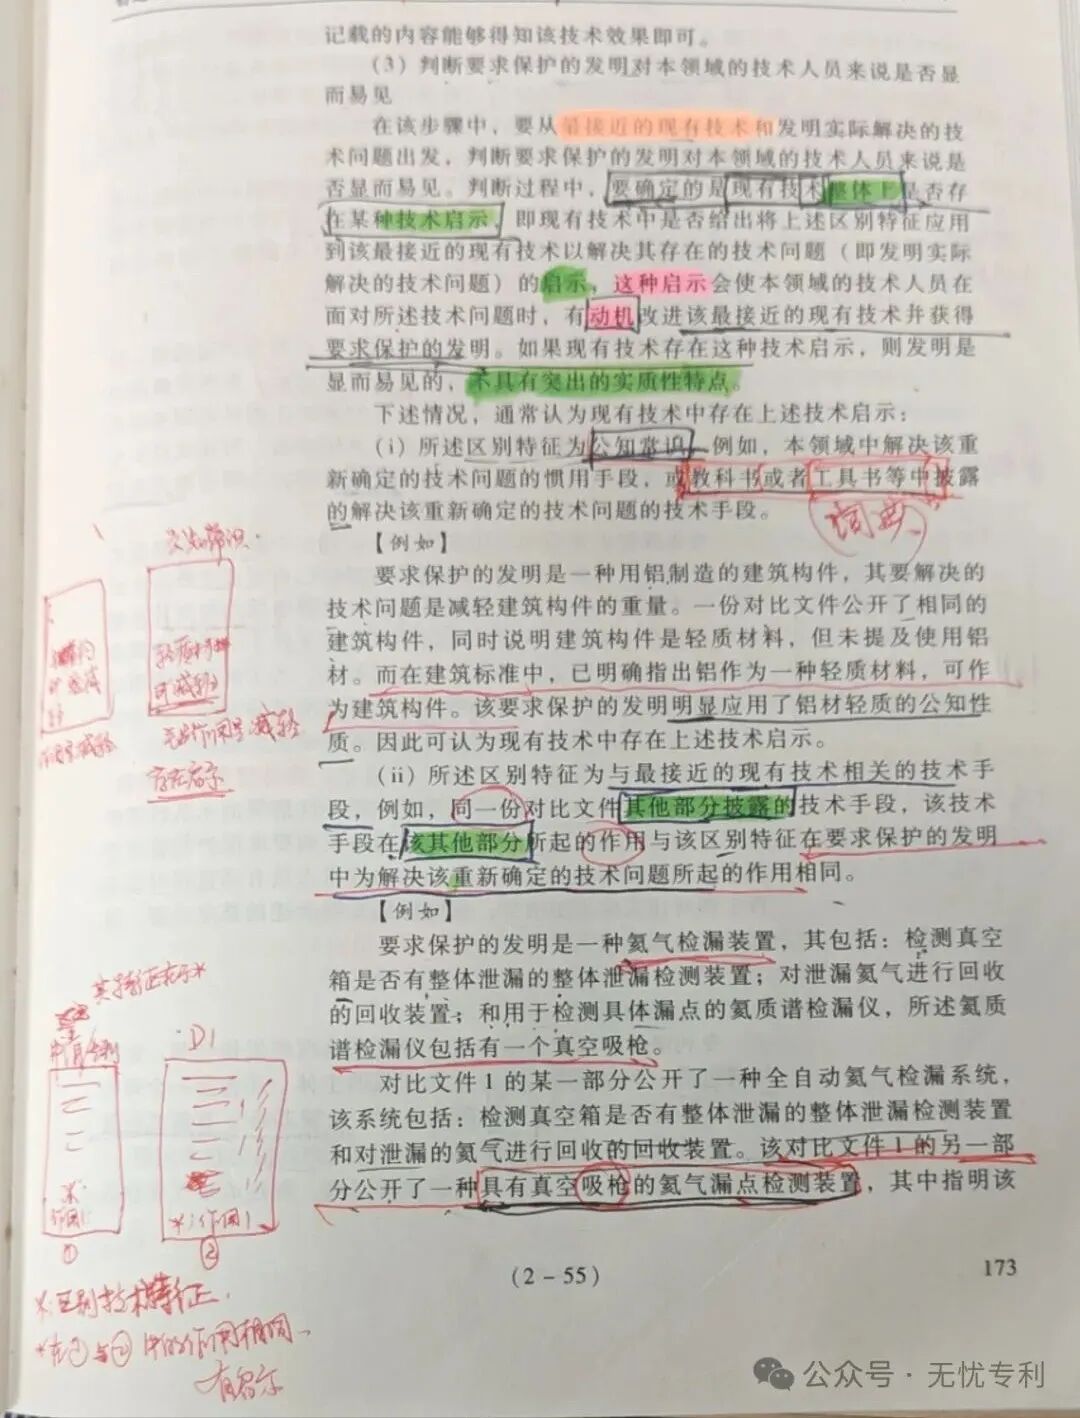 记载的内容能够得知该技术效果即可。
(3) 判断要求保护的发明对本领域的技术人员来说是否显
而易见
在该步骤中，要从最接近的现有技术和发明实际解决的技
术问题出发，判断要求保护的发明对本领域的技术人员来说是
否显而易见。判断过程中，要确定的是现有技术整体上是否存
在某种技术启示，即现有技术中是否给出将上述区别特征应用
到该最接近的现有技术以解决其存在的技术问题（即发明实际
解决的技术问题）的启示，这种启示会使本领域的技术人员在
面对所述技术问题时，有动机改进该最接近的现有技术并获得
要求保护的发明。如果现有技术存在这种技术启示，则发明是
显而易见的，不具有突出的实质性特点。
下述情况，通常认为现有技术中存在上述技术启示：
(i) 所述区别特征为公知常识，例如，本领域中解决该重
新确定的技术问题的惯用手段，或教科书或者工具书等中披露
的解决该重新确定的技术问题的技术手段。
词典
【例如】
公知常识
要求保护的发明是一种用铝制造的建筑构件，其要解决的
技术问题是减轻建筑构件的重量。一份对比文件公开了相同的
建筑构件，同时说明建筑构件是轻质材料，但未提及使用铝
材。而在建筑标准中，已明确指出铝作为一种轻质材料，可作
为建筑构件。该要求保护的发明明显应用了铝材轻质的公知性
质。因此可认为现有技术中存在上述技术启示。
轻质材料
可减轻
减轻
存在启示
(ii) 所述区别特征为与最接近的现有技术相关的技术手
段，例如，同一份对比文件其他部分披露的技术手段，该技术
手段在该其他部分所起的作用与该区别特征在要求保护的发明
中为解决该重新确定的技术问题所起的作用相同。
【例如】
要求保护的发明是一种氦气检漏装置，其包括：检测真空
箱是否有整体泄漏的整体泄漏检测装置；对泄漏氦气进行回收
的回收装置；和用于检测具体漏点的氦质谱检漏仪，所述氦质
谱检漏仪包括有一个真空吸枪。
对比文件1的某一部分公开了一种全自动氦气检漏系统，
该系统包括：检测真空箱是否有整体泄漏的整体泄漏检测装置
和对泄漏的氦气进行回收的回收装置。该对比文件1的另一部
分公开了一种具有真空吸枪的氦气漏点检测装置，其中指明该
D1
作用1
*：作用1
①
②
*区别技术特征.
*在①与②中的作用相同
有启示
(2－55)
173
公众号·无忧专利